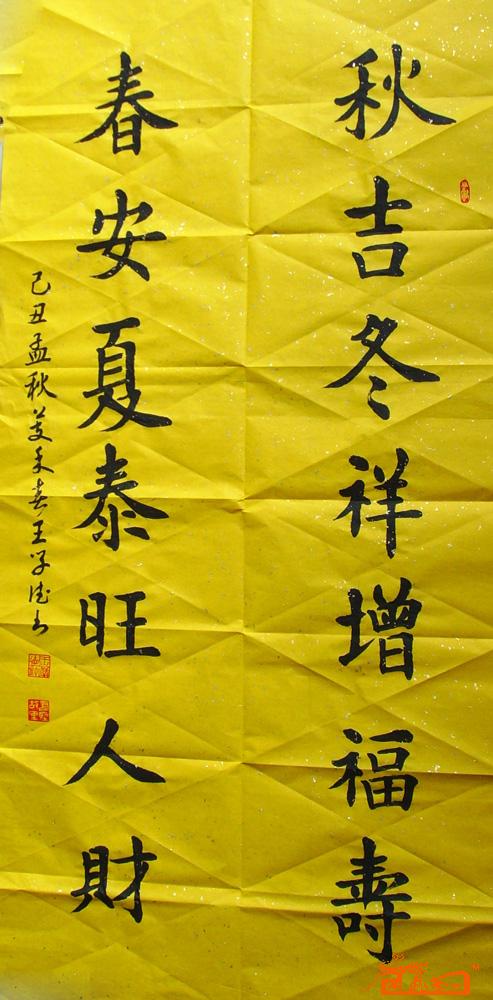 秋吉冬祥增福壽
春安夏泰旺人財
己丑孟秋 王学德书